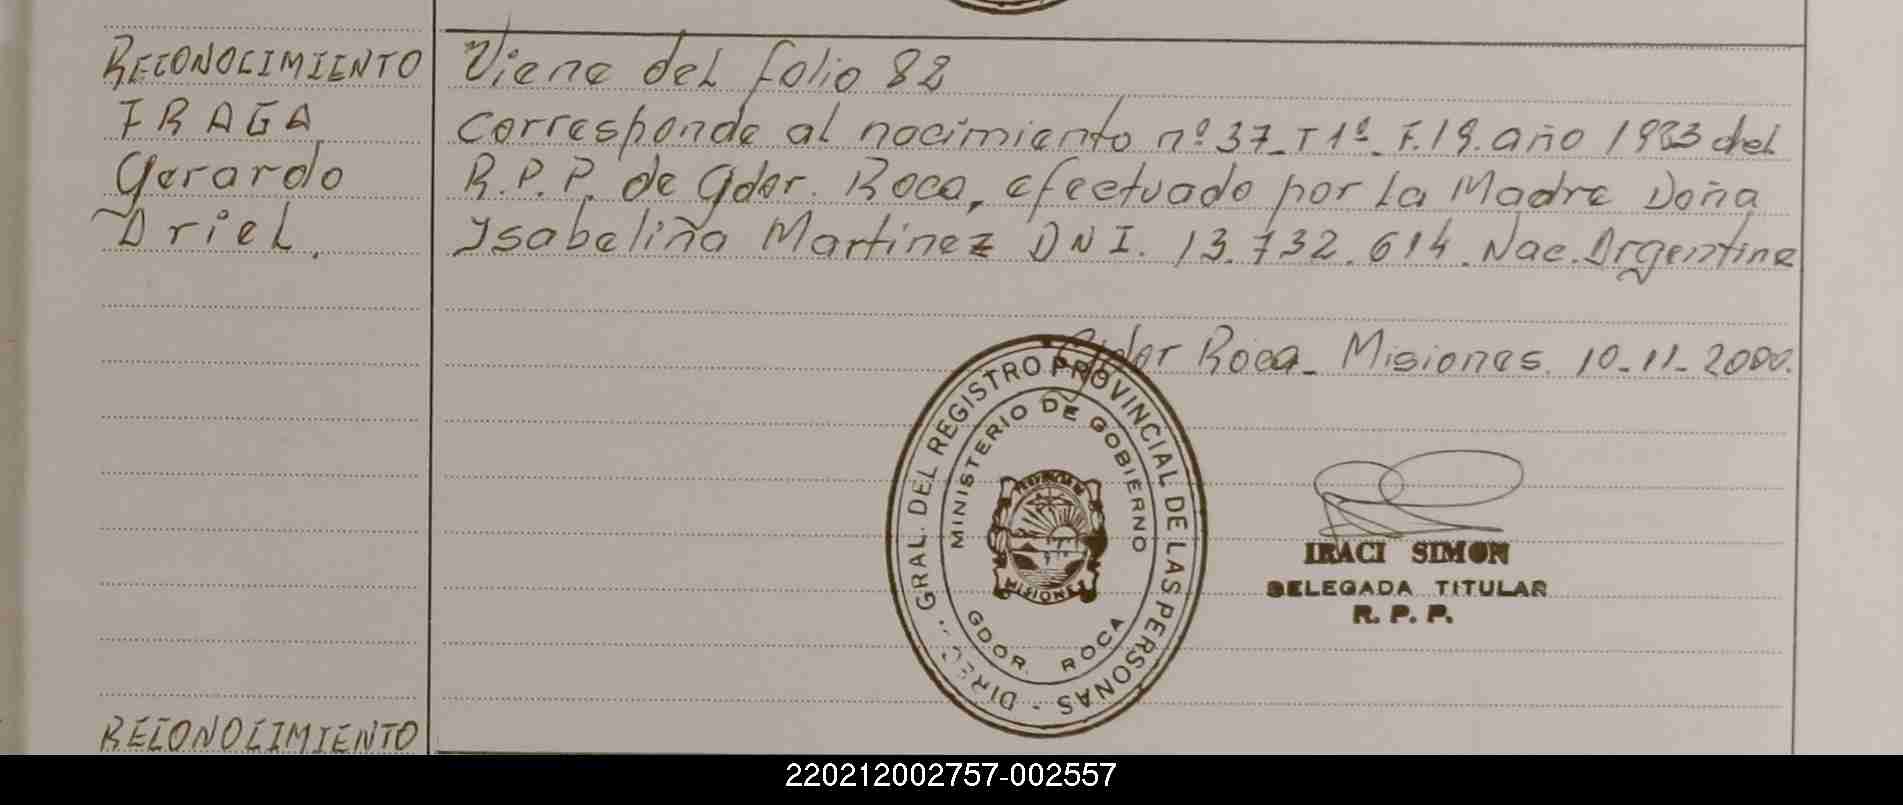 RECONOCIMIENTO
FRAGA
Gerardo
Ariel.
Viene del folio 82
Corresponde al nacimiento nº 37_T1º_F.19. año 1983 del
R.P.P. de Gdor. Roca, efectuado por la Madre Doña
Ysabeliña Martinez DNI. 13.732.614. Nac. Argentina
Gdor Roca_ Misiones. 10_11_2000.
DIREC. GRAL. DEL REGISTRO PROVINCIAL DE LAS PERSONAS -
MINISTERIO DE GOBIERNO
MISIONES
GDOR. ROCA
IRACI SIMON
DELEGADA TITULAR
R. P. P.
RECONOCIMIENTO
220212002757-002557